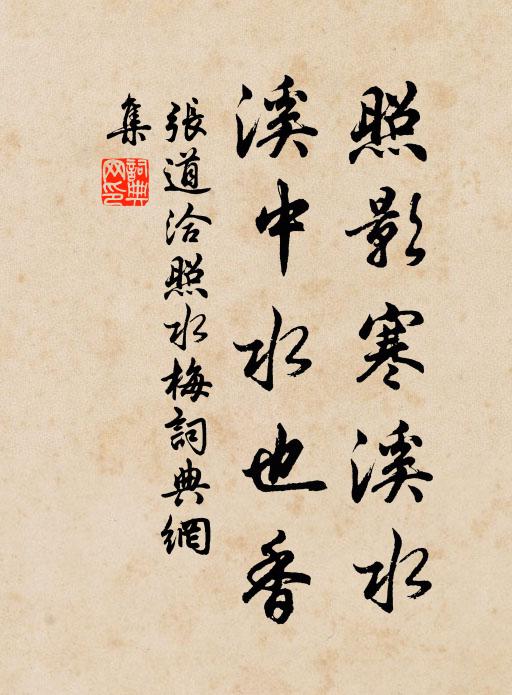 照影寒溪水
溪中水也香
張道洽照水梅詞典網
集
詞典
网印